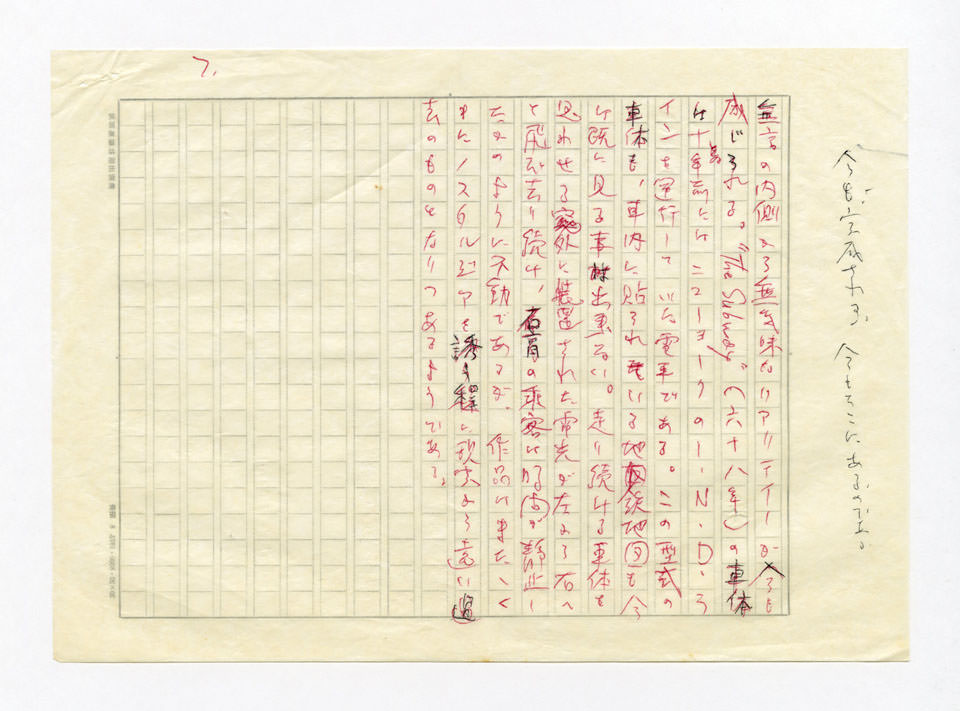 7.
無言の内側から無気味なリアリティーが今も
感じられる。“The Subway”（六十八年）の車体
は十年前にはニューヨークのI・N・D・ラ
インを運行していた電車である。この型式の
車体も、車内に貼られている地下鉄地図も今
は既に見る事が出来ない。走り続ける車体を
思わせる窓外に装置された電光が左から右へ
と飛び去り続け、石膏の乗客は時間が静止し
たかのように不動であるが、作品はまたゝく
まにノスタルジアを誘う程に現実から遠い過
去のものとなりつつあるようである。